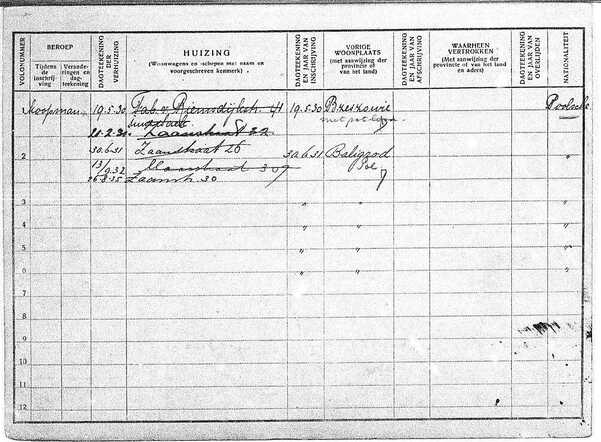 VOLGNUMMER
BEROEP
Tijdens de inschrijving
Veranderingen en dagteekening
DAGTEEKENING DER VERHUIZING
HUIZING
(Woonwagens en -schepen met naam en voorgeschreven kenmerk)
DAGTEEKENING EN JAAR VAN INSCHRIJVING
VORIGE WOONPLAATS
(met aanwijzing der provincie of van het land)
DAGTEEKENING EN JAAR VAN AFSCHRIJVING
WAARHEEN VERTROKKEN
(Met aanwijzing der provincie of van het land en adres)
DAGTEEKENING EN JAAR VAN OVERLIJDEN
NATIONALITEIT
Koopman 19.5.30 Fab. v. Riemsdijkstr. 41 19.5.30 Poolsche
Zaanstraat 22
30.6.31 Zaanstraat 26
2 30.6.31 Baligrod "
13/9.32
Pol
Zaanstr. 30
3 " " "
4 " " "
5 " " "
6 " " "
7
8
9
10
11
12